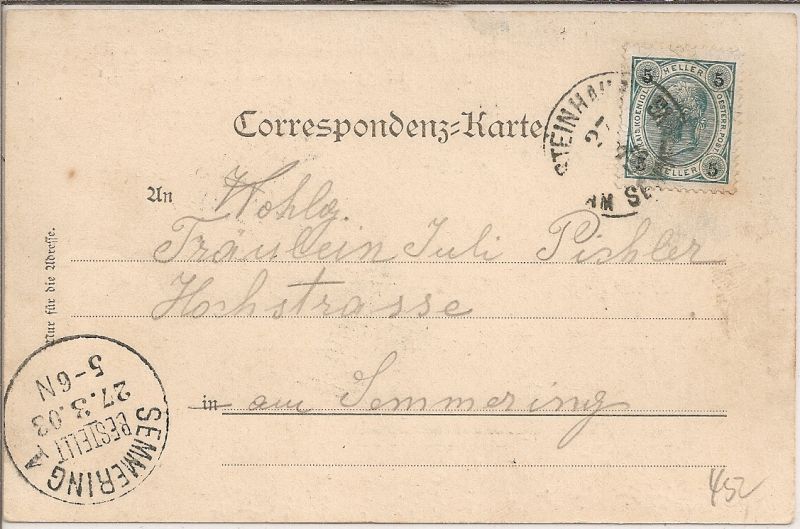 5 HELLER 5
KAIS. KOENIGL. OESTERR. POST
5 HELLER 5
STEINHAUS
27
AM SE
Correspondenz=Karte
An Wohlg.
Fräulein Juli Pichler
Hochstrasse
in am Semmering
Nur für die Adresse.
SEMMERING
BESTELLT
27.3.03
5-6N
452